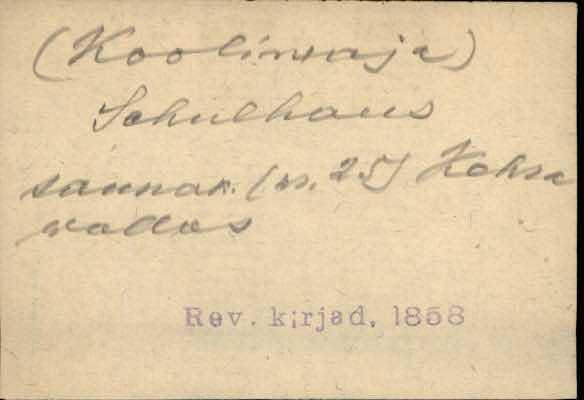 (Koolimaja)
Schulhaus
saunak. (nr. 25) Kehra
vallas
Rev. kirjad. 1858